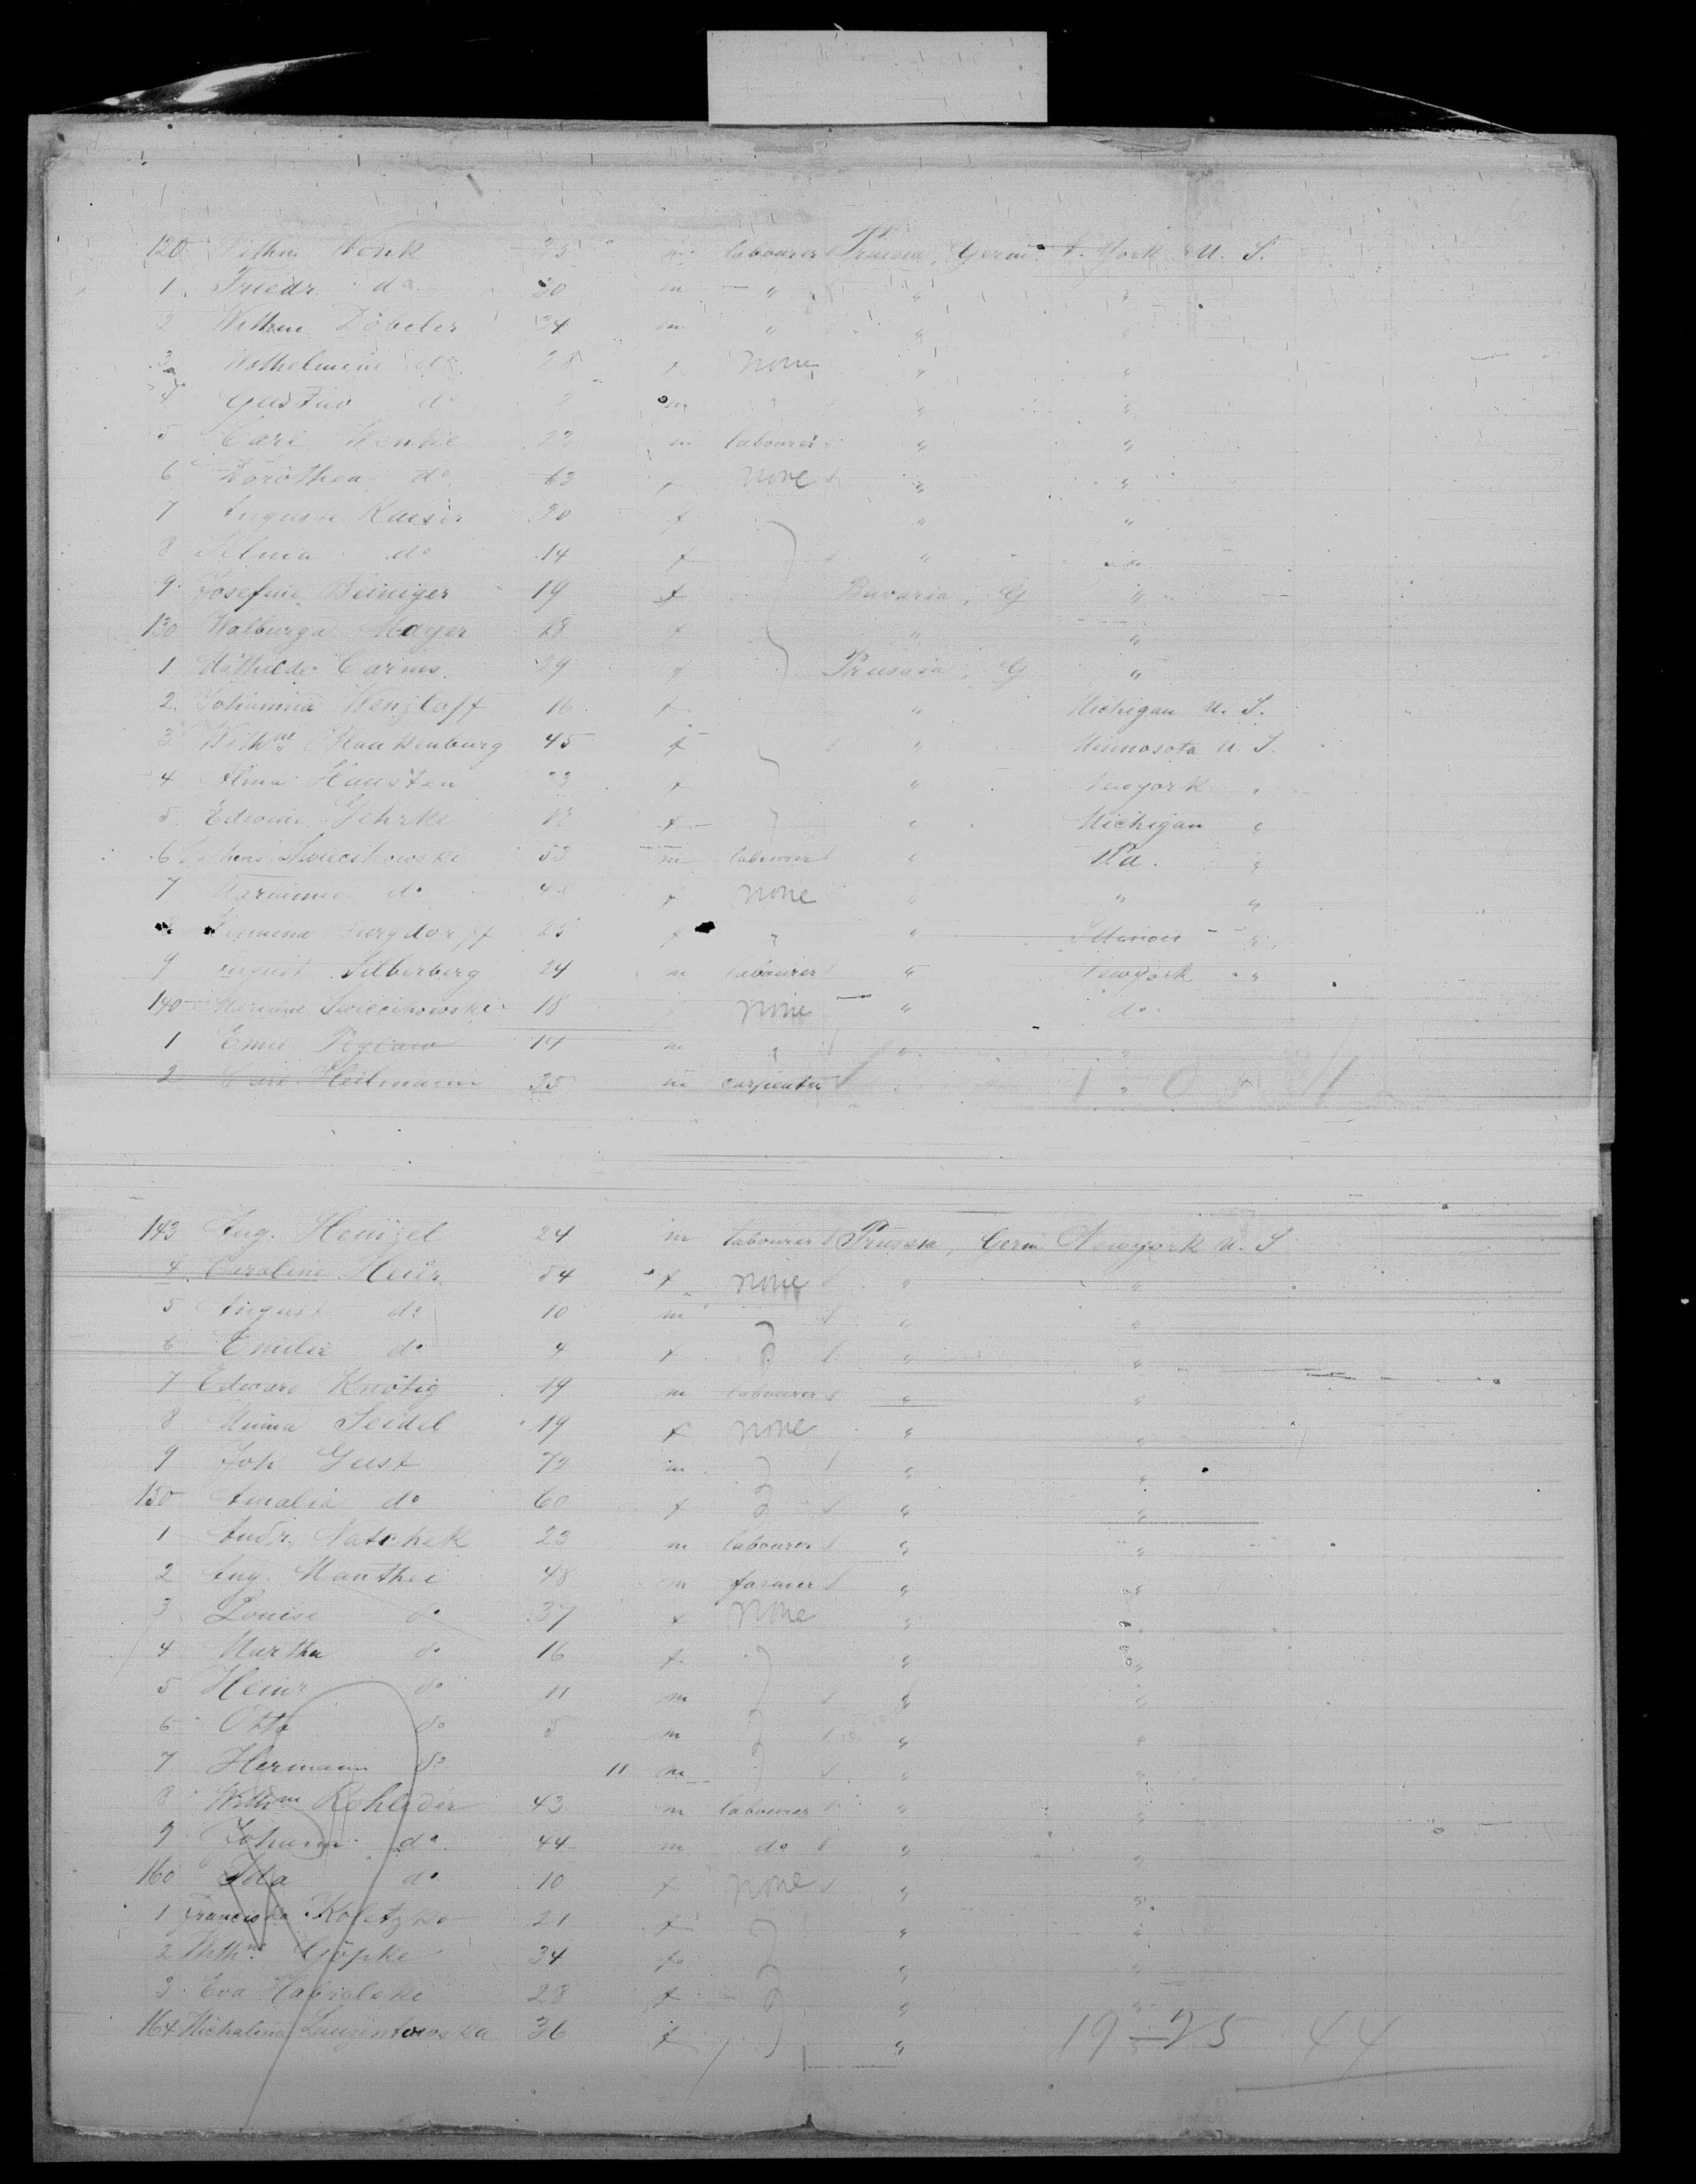 120 Wilhm Wenk 25 m labourer Prussia, Germ. N. York U. S.
1 Friedr. do 30 m " " "
2 Wilhm Döbeler 34 m " " "
3 Wilhelmine do 28 f none " "
4 Gustav do m " " "
5 Carl Wenke 22 m labourer " "
6 Dorothea do 63 f none " "
7 Auguste Kaiser 30 f " "
8 Selma do 14 f " "
9 Josefine 19 f Bavaria, G "
130 Walburga Mayer 18 f " "
1 Mathilde Carius 29 f Prussia, G "
2 Johanna Wenzlaff 16 f " Michigan U. S.
3 Wilhne Blankenburg 45 f " Minnosota U. S.
4 Alma Hausten 23 f " Newyork "
5 Edwine Gehrke f " Michigan "
6 Swiecikowski 53 m labourer " Pa. "
7 Marianne do 48 f none " " "
8 Hermine Burgdorff 25 f " " Illinois "
9 August Silberberg 24 m labourer " Newyork "
140 Marianne Swiecikowski 18 f none " do
1 Emil 17 m " " "
2 Carl Heilmann 35 m carpenter " "
143 Aug. Henzel 24 m labourer Prussia, Germ. Newyork U. S
4 Caroline Heier 54 f none " "
5 August do 10 m " "
6 Emilie do 4 f " "
7 Edward Knötig 19 m labourer " "
8 Minna Seidel 19 f none " "
9 Joh Gust 72 m " "
150 Amalia do 60 f " "
1 Andr. Natschek 23 m labourer " "
2 Aug. Manthei 48 m farmer " "
3 Louise do 37 f none " "
4 Martha do 16 f " "
5 Heinr do 11 m " "
6 Otto do 5 m " "
7 Hermann do 11 m " "
8 Wilhm Rohleder 43 m labourer " "
9 Johann do 44 m do " "
160 Ida do 10 f none " "
1 Franciska Koletzko 21 f " "
2 Wilhne Göpke 34 f " "
3 Eva 28 f " "
164 Michalina Laurentowska 36 f " 19 — 25 44